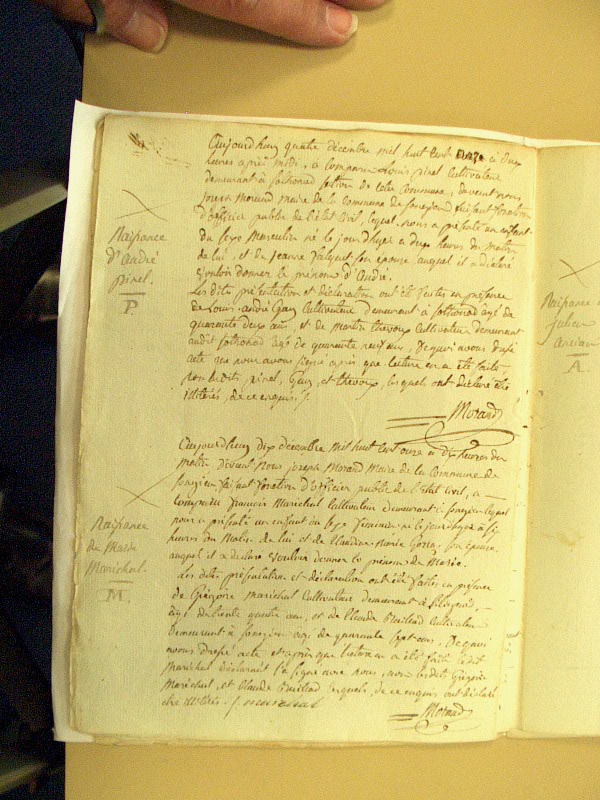 Aujourdhuy quatre décembre mil huit cent onze à deux
heures après midi, a comparu Louis pinel Cultivateur
demeurant à sothonod section de cette Commune, devant nous
joseph Morand maire de la commune de songieu faisant fonction
d'officier public de l'état Civil, lequel nous a présenté un enfant
du sexe Masculin né le jour d'huy à deux heures du matin
de lui, et de jeanne son épouse auquel il a déclaré
vouloir donner le prénom d'André.
Les dites présentation et déclaration ont été faites en présence
de Louis andré Gay Cultivateur demeurant à sothonod agé de
quarante deux ans, et de martin thevoux Cultivateur demeurant
audit sothonod agé de quarante neuf ans, De quoi avons dressé
acte que nous avons signé après que lecture en a été faite,
non lesdits pinel, Gay, et thevoux, lesquels ont déclaré être
illitérés, de ce enquis ./.
Morand
Naissance
d'André
pinel.
P.
Aujourdhuy dix décembre mil huit cent onze à dix heures du
matin devant nous joseph Morand Maire de la Commune de
songieu, faisant fonction d'officier public de l'état civil, a
comparu françois Maréchal Cultivateur demeurant à songieu lequel
nous a présenté un enfant du sexe féminin né le jour d'huy à six
heures du Matin de lui et de Claudine Marie son épouse
auquel il a déclaré vouloir donner le prénom de Marie.
Les dites présentation et déclaration ont été faites en présence
de Grégoire Maréchal Cultivateur demeurant à
agé de trente quatre ans, et de Claude Cultivateur
demeurant à songieu agé de quarante sept ans, De quoi
avons dressé acte et après que lecture en a été faite ledit
Maréchal déclarant l'a signé avec nous, non lesdits Grégoire
Maréchal, et Claude lesquels, de ce enquis ont déclaré
être illitérés ./. marechal
Morand
Naissance
de Marie
Maréchal.
M.
Naissance
julien
A.